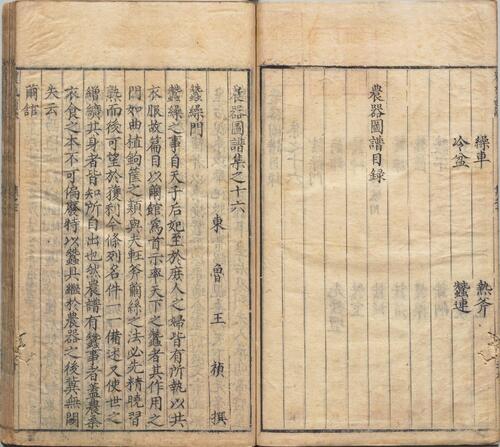 繰車　熱釜
冷盆　蠶連
農器圖譜目錄
農器圖譜集之十六
東魯王禎撰
蠶繰門
蠶繰之事自天子后妃至於庶人之婦皆有所執以共
衣服故篇目以繭館爲首示率天下之蠶者其作用之
間如曲植鉤筐之類與夫軖釜繭絲之法必先精曉習
熟而後可望於獲利今條列名件一一備述又使世之
繒纊其身者皆知所自出也然農譜有蠶事者蓋農桑
衣食之本不可偏廢特以蠶具繼於農器之後冀無闕
失云
繭舘